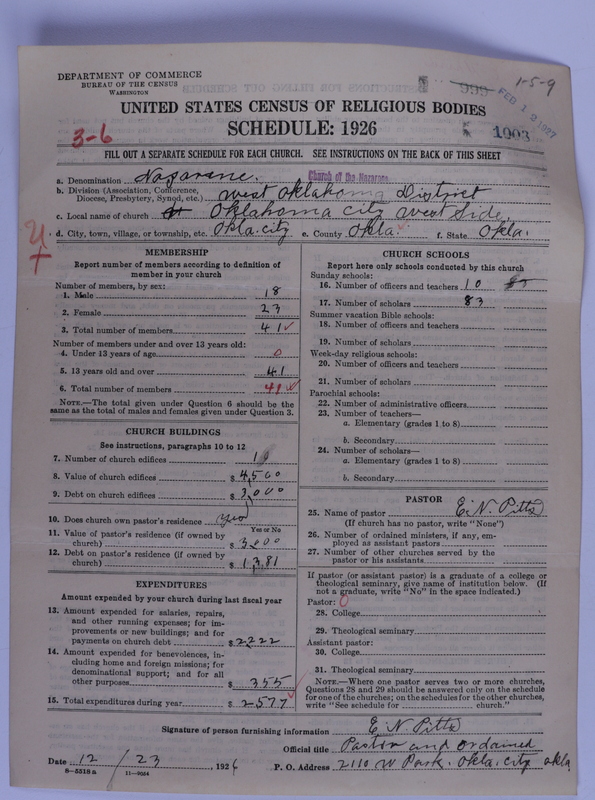 DEPARTMENT OF COMMERCE
BUREAU OF THE CENSUS
WASHINGTON
1-5-9
FEB 12 1927
UNITED STATES CENSUS OF RELIGIOUS BODIES
3-6
SCHEDULE: 1926
1003
FILL OUT A SEPARATE SCHEDULE FOR EACH CHURCH. SEE INSTRUCTIONS ON THE BACK OF THIS SHEET
a. Denomination Nazarane. Church of the Nazarene
b. Division (Association, Conference, Diocese, Presbytery, Synod, etc.) west Oklahoma District
c. Local name of church Oklahoma city west Side,
d. City, town, village, or township, etc. Okla. city e. County Okla. f. State Okla.
MEMBERSHIP
Report number of members according to definition of member in your church
Number of members, by sex:
1. Male 18
2. Female 23
3. Total number of members 41
Number of members under and over 13 years old:
4. Under 13 years of age 0
5. 13 years old and over 41
6. Total number of members 41
NOTE.—The total given under Question 6 should be the same as the total of males and females given under Question 3.
CHURCH BUILDINGS
See instructions, paragraphs 10 to 12
7. Number of church edifices 1
8. Value of church edifices $4,500
9. Debt on church edifices $3,000
10. Does church own pastor's residence yes
Yes or No
11. Value of pastor's residence (if owned by church) $3,000
12. Debt on pastor's residence (if owned by church) $1,381
EXPENDITURES
Amount expended by your church during last fiscal year
13. Amount expended for salaries, repairs, and other running expenses; for improvements or new buildings; and for payments on church debt $2,222
14. Amount expended for benevolences, including home and foreign missions; for denominational support; and for all other purposes $355
15. Total expenditures during year $2577
CHURCH SCHOOLS
Report here only schools conducted by this church:
Sunday schools:
16. Number of officers and teachers 10
17. Number of scholars 83
Summer vacation Bible schools:
18. Number of officers and teachers
19. Number of scholars
Week-day religious schools:
20. Number of officers and teachers
21. Number of scholars
Parochial schools:
22. Number of administrative officers
23. Number of teachers—
a. Elementary (grades 1 to 8)
b. Secondary
24. Number of scholars—
a. Elementary (grades 1 to 8)
b. Secondary
PASTOR
25. Name of pastor E. N. Pitts
(If church has no pastor, write "None")
26. Number of ordained ministers, if any, employed as assistant pastors
27. Number of other churches served by the pastor or his assistants
If pastor (or assistant pastor) is a graduate of a college or theological seminary, give name of institution below. (If not a graduate, write "No" in the space indicated.)
Pastor: 0
28. College
29. Theological seminary
Assistant pastor:
30. College
31. Theological seminary
NOTE.—Where one pastor serves two or more churches, Questions 28 and 29 should be answered only on the schedule for one of the churches; on the schedules for the other churches, write "See schedule for church."
Signature of person furnishing information E N Pitts
Official title Pastor and ordained
Date 12/23, 1926 P. O. Address 2110 W Park. Okla. city okla
8-5318a 11-9054